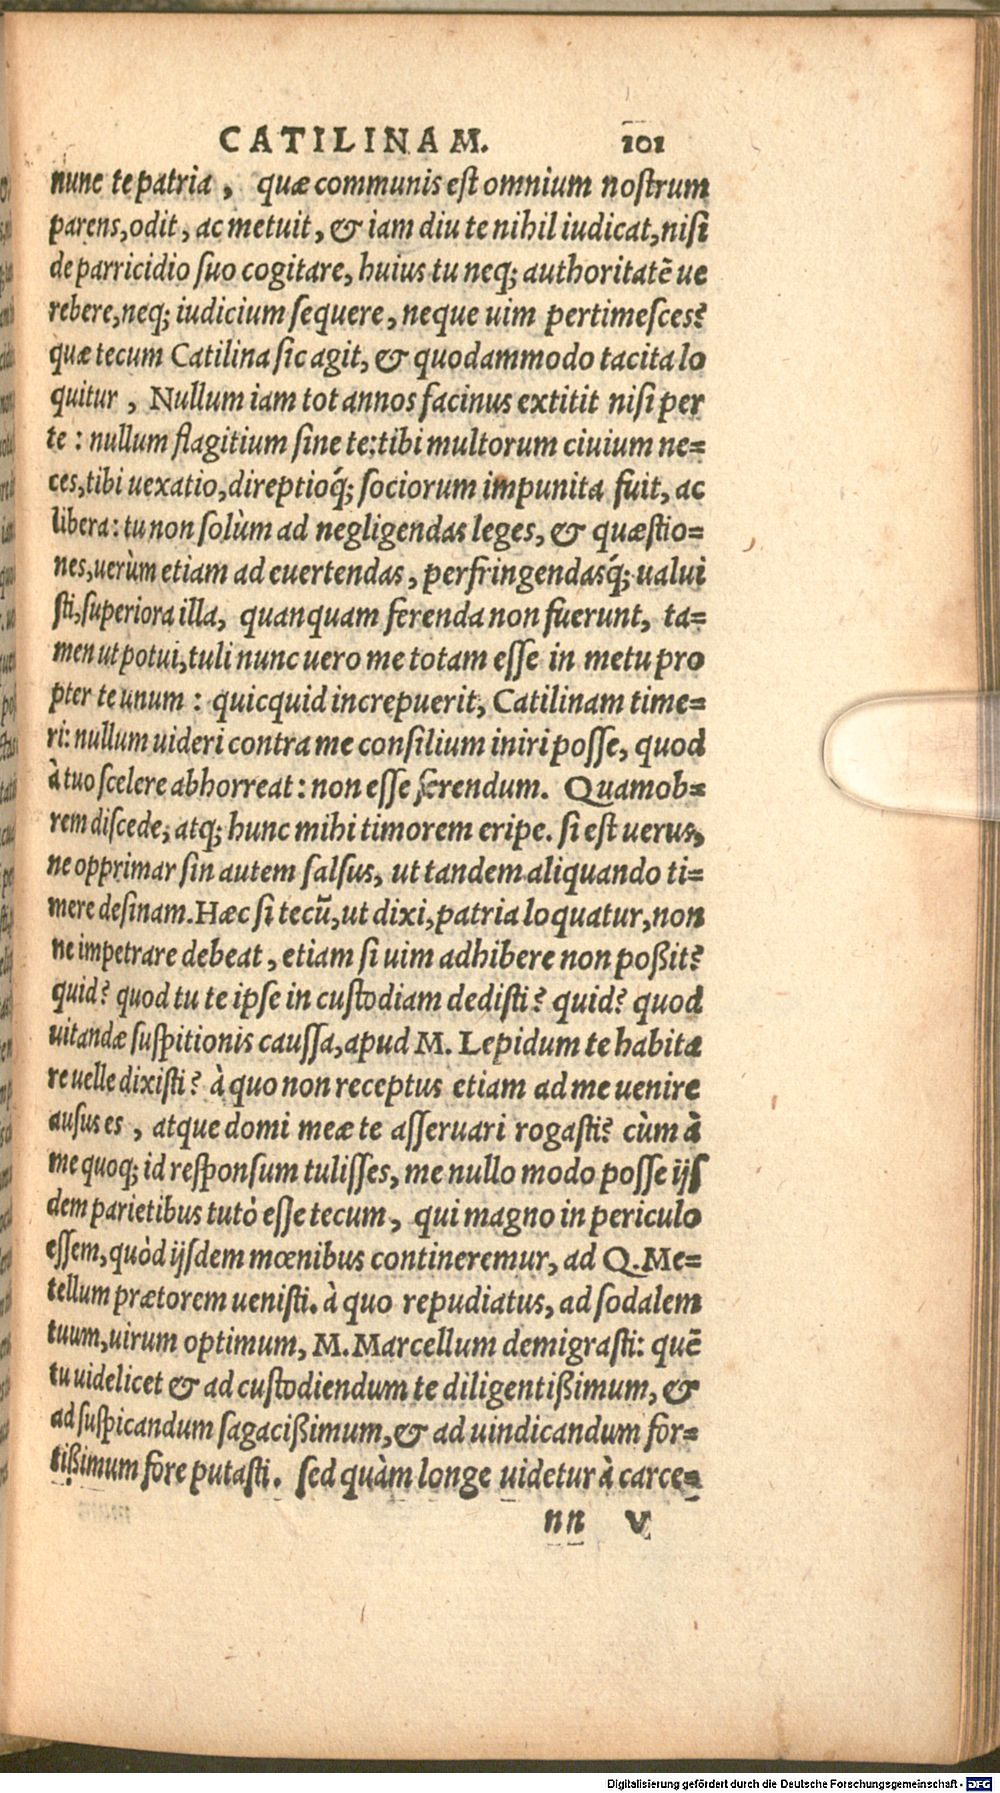 CATILINAM. 101
nunc te patria, quæ communis est omnium nostrum
parens, odit, ac metuit, & iam diu te nihil iudicat, nisi
de parricidio suo cogitare, huius tu neq; authoritatē ue
rebere, neq; iudicium sequere, neque uim pertimesces?
quæ tecum Catilina sic agit, & quodammodo tacita lo
quitur, Nullum iam tot annos facinus extitit nisi per
te: nullum flagitium sine te: tibi multorum ciuium ne=
ces, tibi uexatio, direptioq́; sociorum impunita fuit, ac
libera: tu non solùm ad negligendas leges, & quæstio=
nes, uerùm etiam ad euertendas, perfringendasq́; ualui
sti, superiora illa, quanquam ferenda non fuerunt, ta=
men ut potui, tuli nunc uero me totam esse in metu pro
pter te unum: quicquid increpuerit, Catilinam time=
ri: nullum uideri contra me consilium iniri posse, quod
à tuo scelere abhorreat: non esse ferendum. Quamob=
rem discede, atq; hunc mihi timorem eripe. si est uerus,
ne opprimar sin autem salsus, ut tandem aliquando ti=
mere desinam. Hæc si tecū, ut dixi, patria loquatur, non
ne impetrare debeat, etiam si uim adhibere non poßit?
quid? quod tu te ipse in custodiam dedisti? quid? quod
uitandæ suspitionis caussa, apud M. Lepidum te habita
re uelle dixisti? à quo non receptus etiam ad me uenire
ausus es, atque domi meæ te asseruari rogasti? cùm à
me quoq; id responsum tulisses, me nullo modo posse ijs
dem parietibus tutò esse tecum, qui magno in periculo
essem, quòd ijsdem mœnibus contineremur, ad Q. Me=
tellum prætorem uenisti. à quo repudiatus, ad sodalem
tuum, uirum optimum, M. Marcellum demigrasti: quē
tu uidelicet & ad custodiendum te diligentißimum, &
ad suspicandum sagacißimum, & ad uindicandum for=
tißimum fore putasti. sed quàm longe uidetur à carce=
nn V
Digitalisierung gefördert durch die Deutsche Forschungsgemeinschaft - DFG